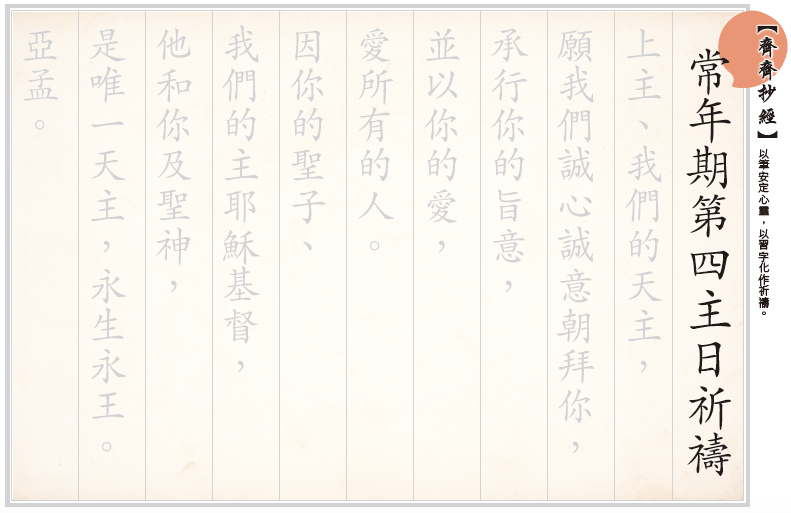 【齊齊抄經】
以筆安定心靈，以習字化作祈禱。
常年期第四主日祈禱
上主、我們的天主，
願我們誠心誠意朝拜你，
承行你的旨意，
並以你的愛，
愛所有的人。
因你的聖子、
我們的主耶穌基督，
他和你及聖神，
是唯一天主，永生永王。
亞孟。